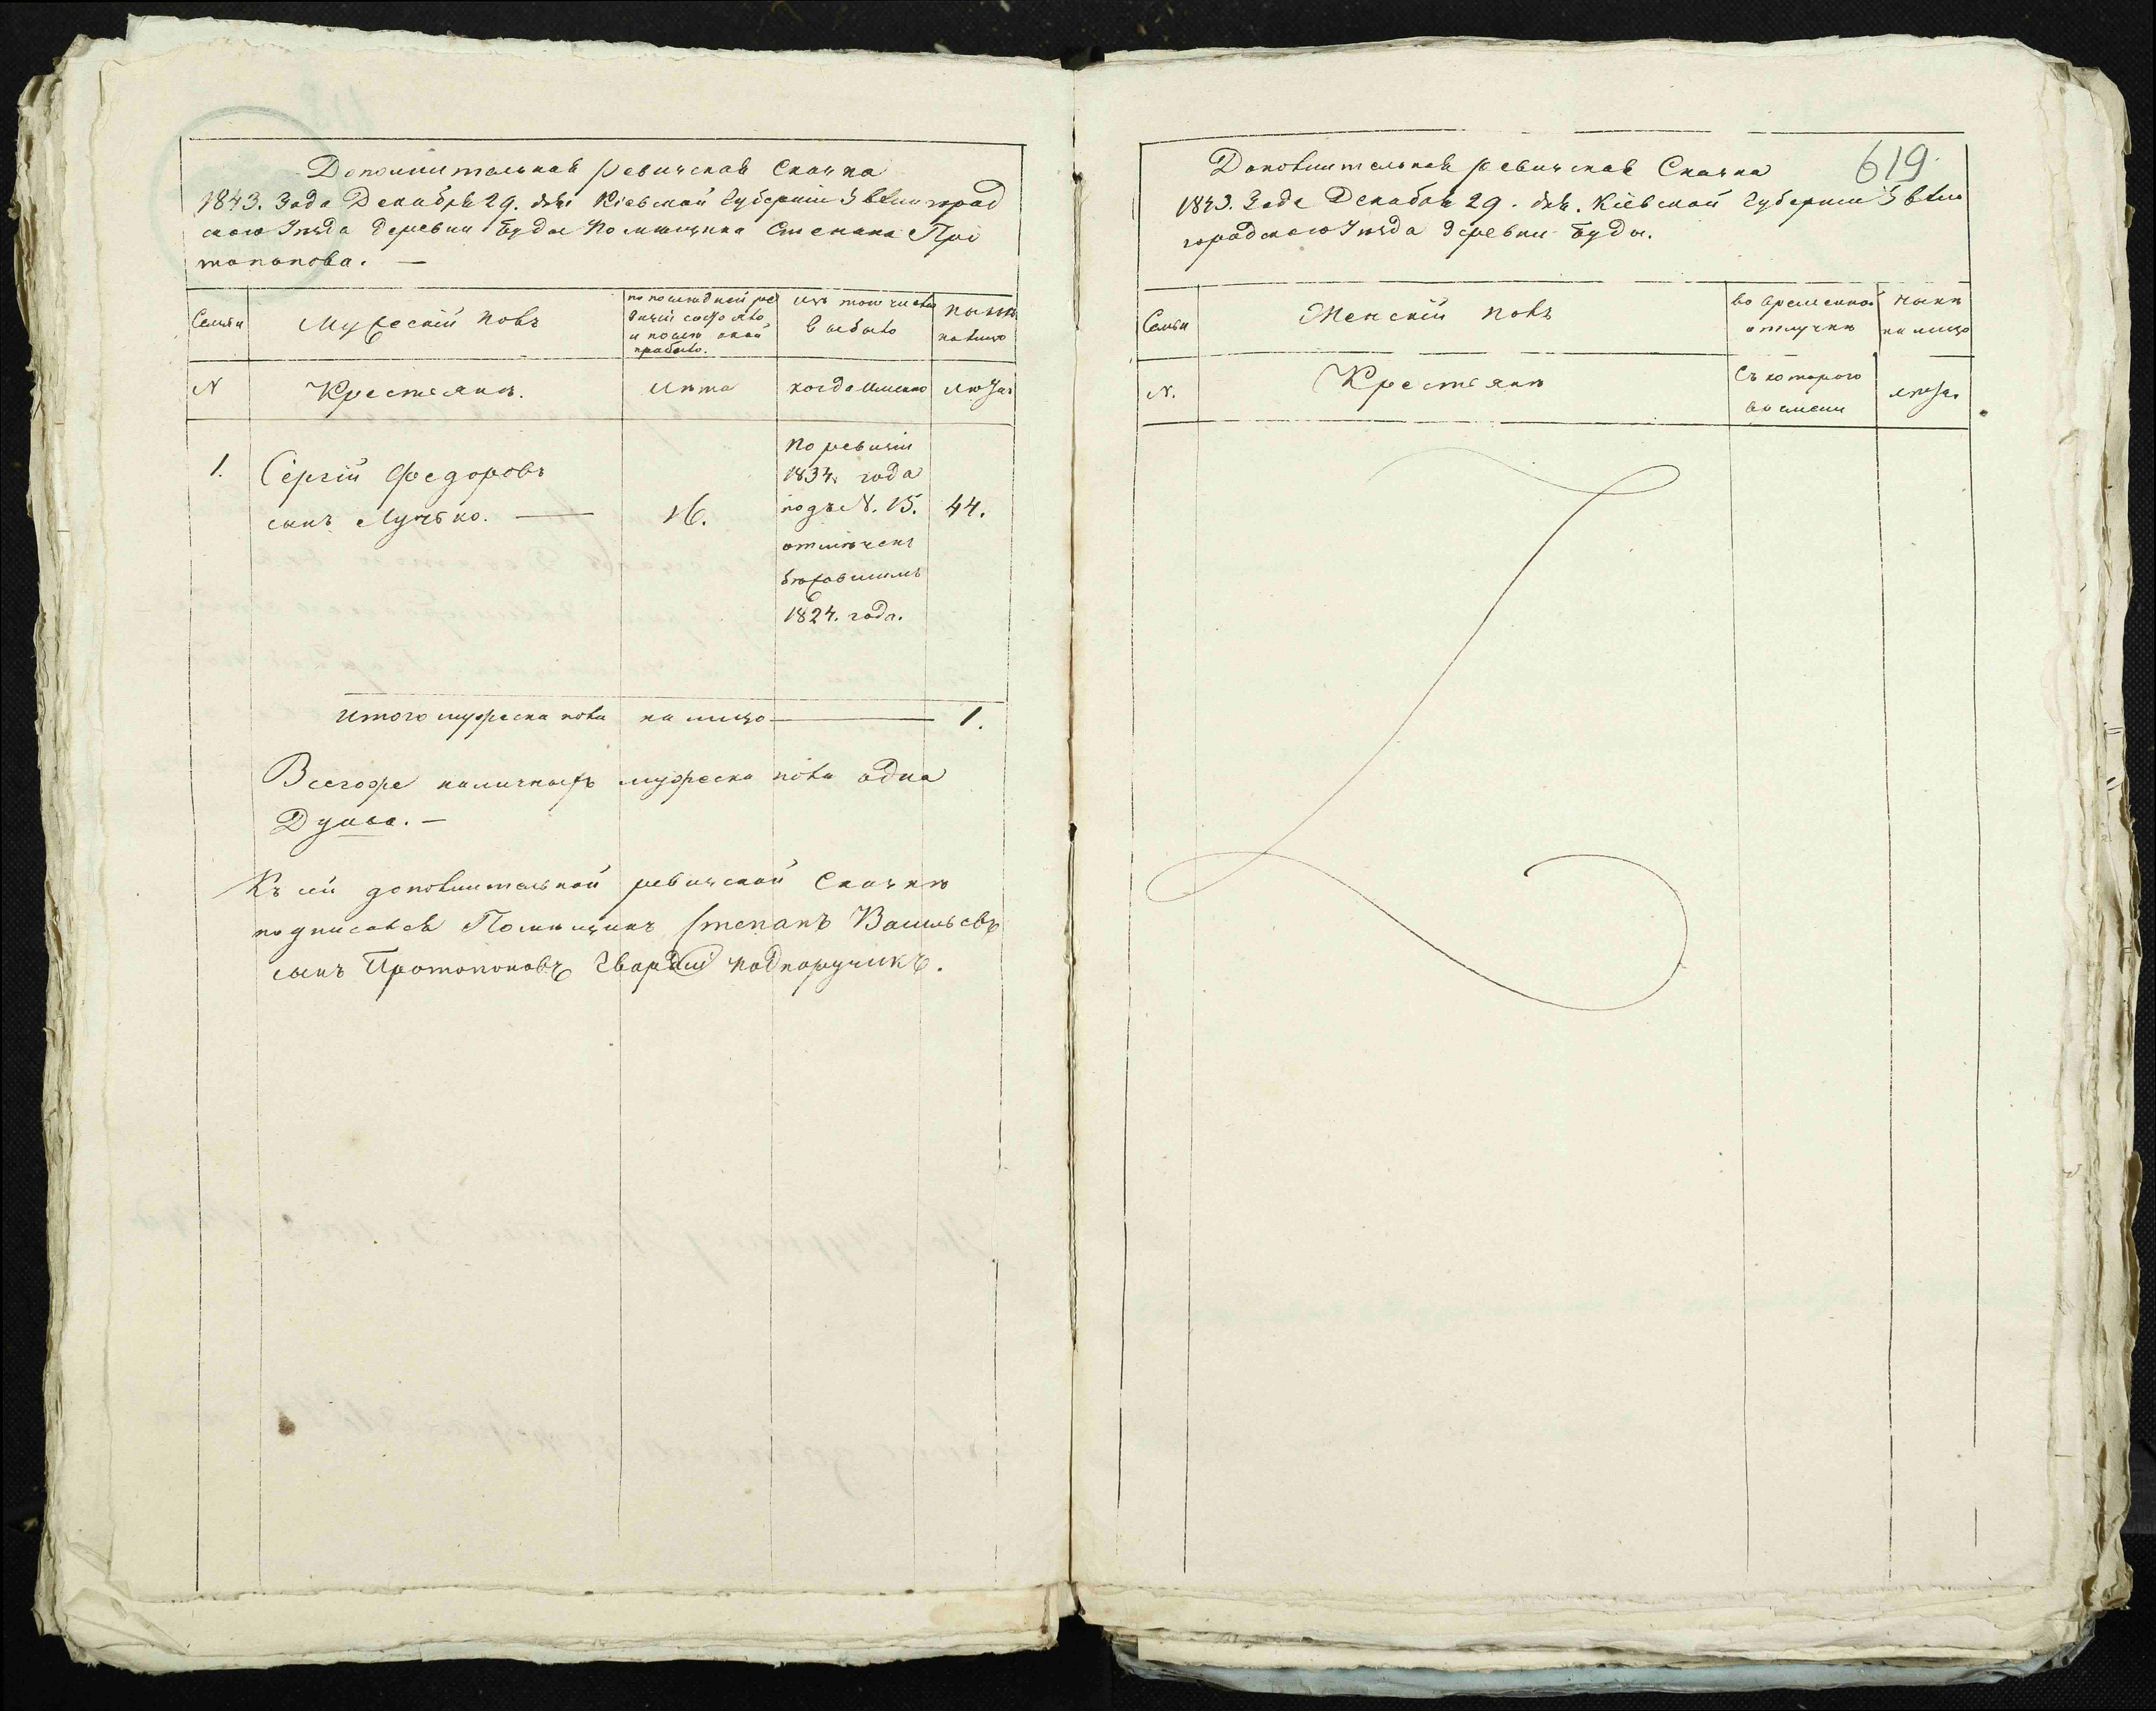 Дополнительная ревизская Сказка
1843. Года Декабря 29. дня Кіевской Губерніи Звенигород
скаго Уезда деревни Буды Помещика Степана Про
топопова. —
Семьи
Мужескій полъ
по последней ре
визіи состояло
и после оной
прибыло.
изъ того числа
выбыло
ныне
на лицо
N
Крестьяне.
Лета
когда именно
Лета
1.
Сергій Федоровъ
сынъ Лучько. —
16.
По ревизіи
1834 года
подъ N. 15.
отмеченъ
бежавшимъ
1824. года.
44.
Итого мужеска пола на лицо — 1.
Всегоже наличныхъ мужеска пола одна
Душа. —
Къ сей дополнительной ревизской Сказке
подписался Помещикъ Степанъ Васильевъ
сынъ Протопоповъ Гвардіи подпоручикъ.
619
Дополнительная ревизская Сказка
1843. Года Декабря 29. дня. Кіевской Губерніи Звени
городскаго Уезда деревни Буды.
Семьи
Женскій полъ
во временной
отлучке
ныне
на лицо
N.
Крестьяне
Съ котораго
времени
Лета